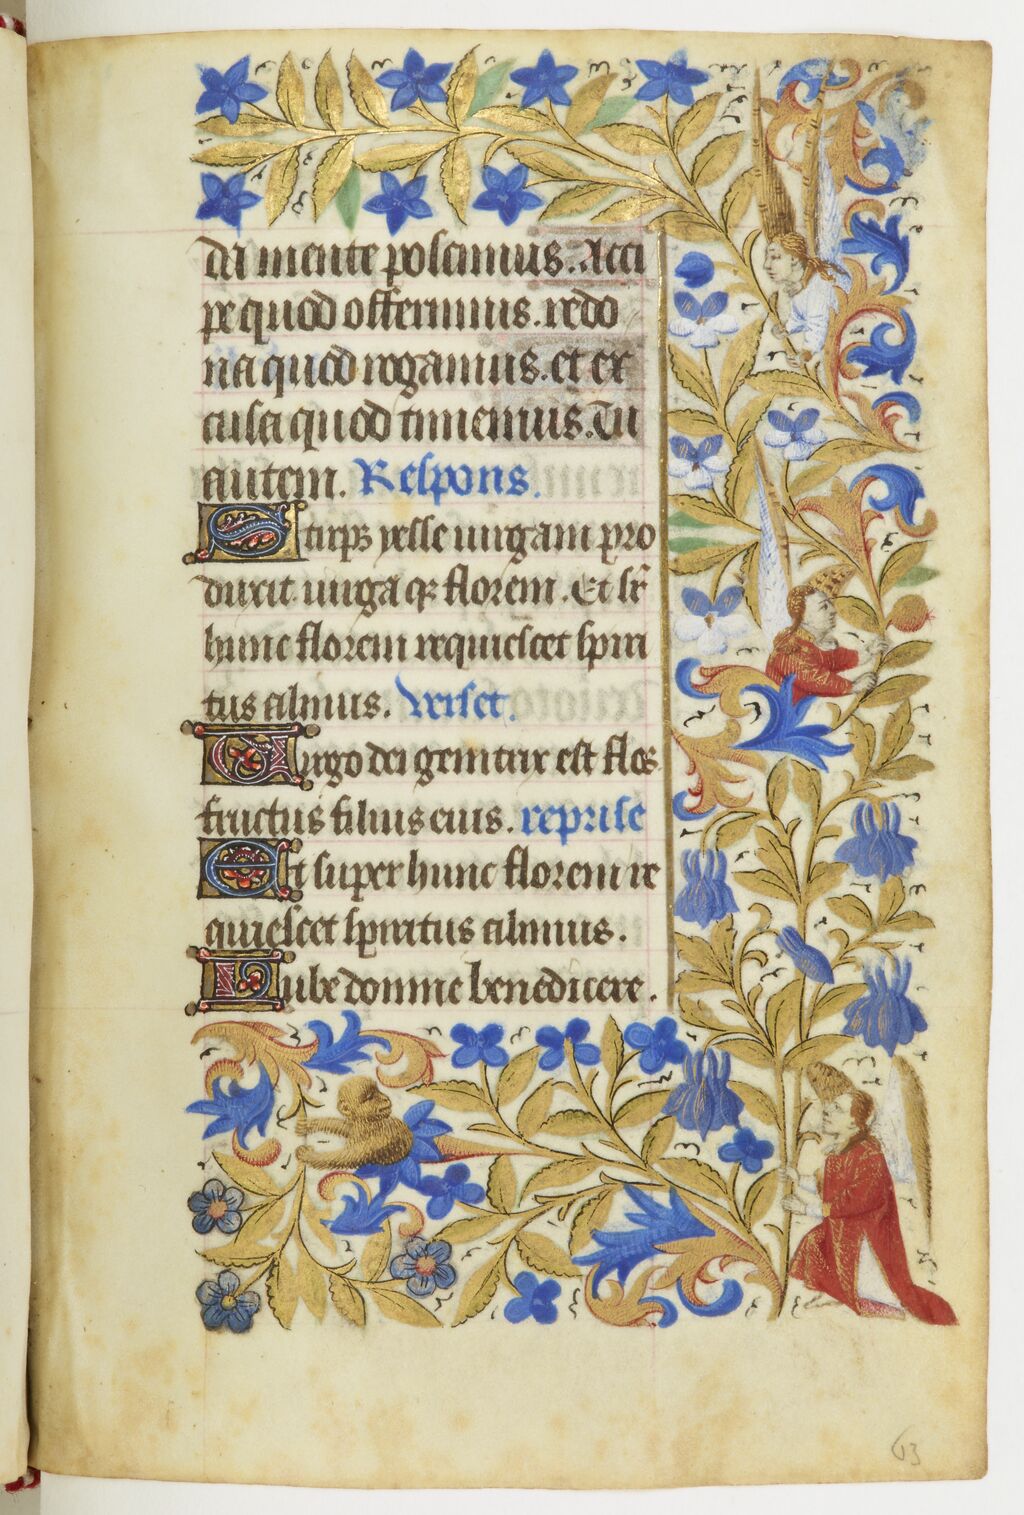 da mente poscimus. Acci
pe quod offerimus. redo
na quod rogamus. et ex
cusa quod timemus. Tu
autem. Respons.
Stirps yesse uirgam pro
duxit uirga qȝ florem. Et sr̄
hunc florem requiescet spiri
tus almus. Verset.
Uirgo dei genitrix est flos
fructus filius eius. reprise
Et super hunc florem re
quiescet spiritus almus.
Iube domine benedicere.
63